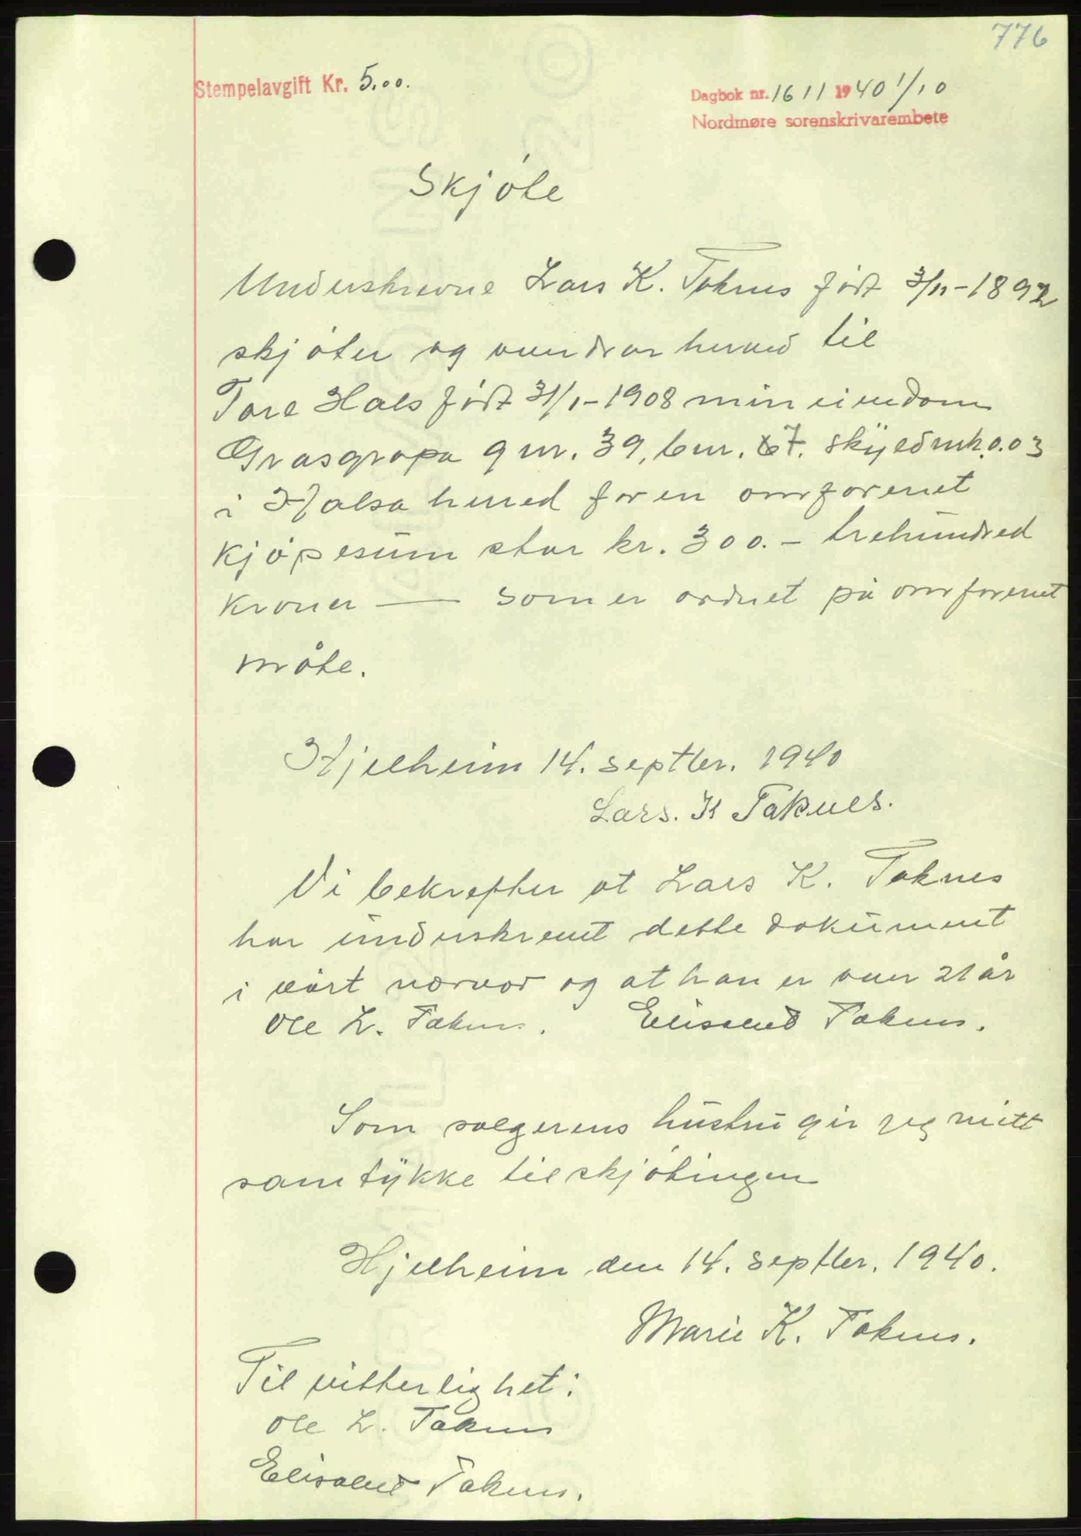 776
Stempelavgift Kr. 5,00.
Dagbok nr. 1611 1940 1/10
Nordmøre sorenskrivarembete
Skjøte
Underskrevne Lars K. Taknes født 3/11-1892
skjøter og overdrar herved til
Tore Hals født 31/1-1908 min eiendom
Grasgropa gnr. 39, bnr. 67. skyldmk. 0.03
i Halsa herred for en omforenet
kjøpesum stor kr. 300.- trehundred
kroner — som er ordnet på omforenet
måte.
Hjelheim 14. septbr. 1940
Lars. K Taknes.
Vi bekrefter at Lars K. Taknes
har underskrevet dette dokument
i vårt nærvær og at han er over 21 år
Ole L. Taknes. Elisabed Taknes.
Som selgerens hustru gir jeg mitt
samtykke til skjøtingen
Hjelheim den 14. septbr. 1940.
Marie K. Taknes.
Til vitterlighet:
Ole L. Taknes
Elisabed Taknes.